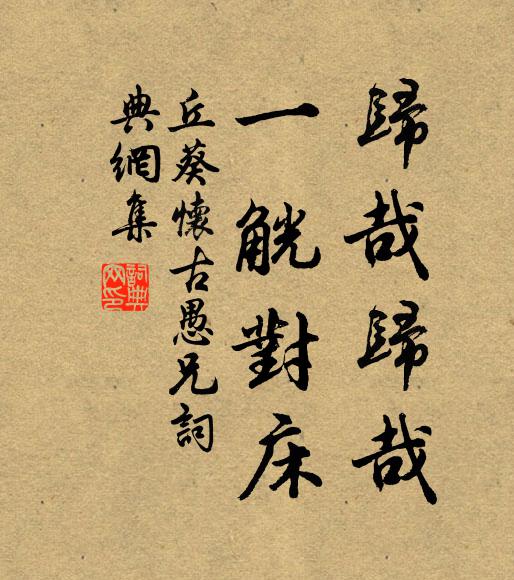 歸哉歸哉
一觥對床
丘葵懷古愚兄詞
典網集
詞典
网印